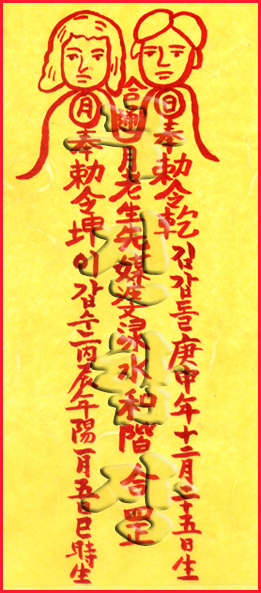 日奉勅令乾김갑돌庚申年十二月二十五日生
月老生先媒婆綠水和階合罡
月奉勅令坤이갑순丙辰年陽一月五日巳時生